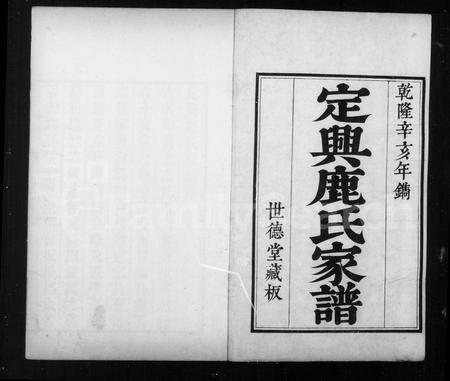 乾隆辛亥年鐫
定興鹿氏家譜
世德堂藏板